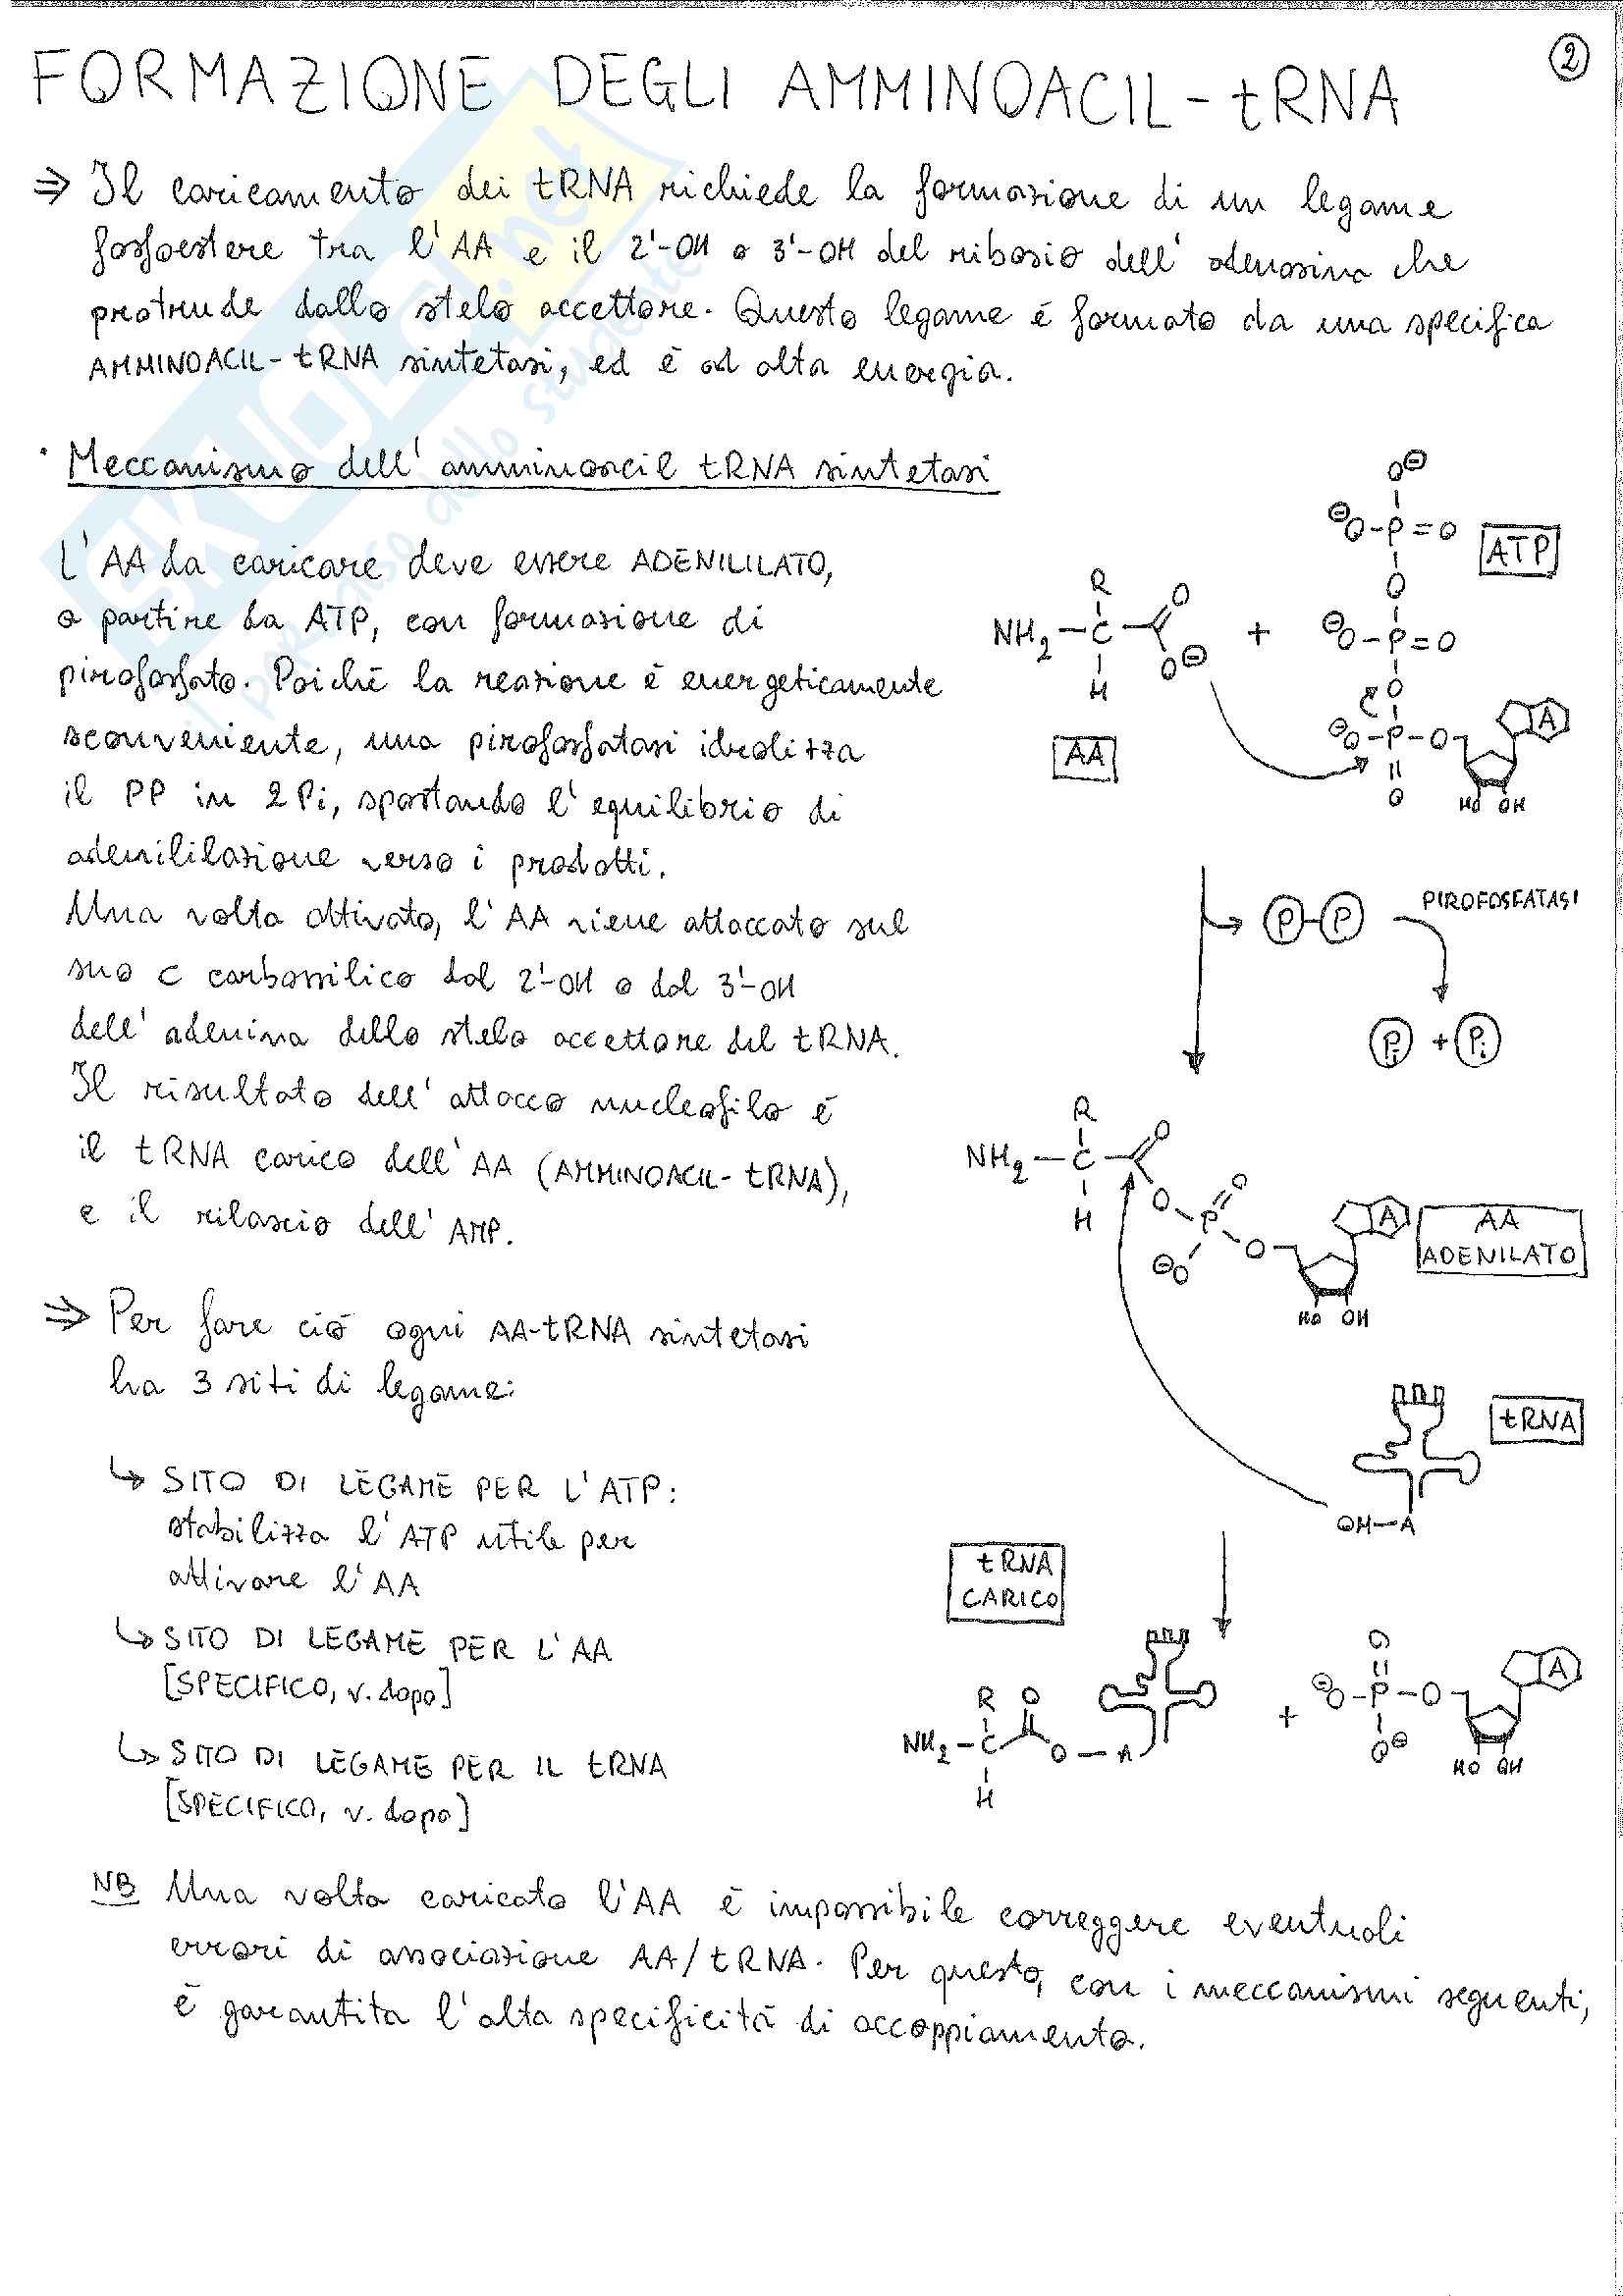 2
FORMAZIONE DEGLI AMMINOACIL-tRNA
⇒ Il caricamento dei tRNA richiede la formazione di un legame
fosfoestere tra l'AA e il 2'-OH o 3'-OH del ribosio dell'adenosina che
protrude dallo stelo accettore. Questo legame é formato da una specifica
AMMINOACIL-tRNA sintetasi, ed é ad alta energia.
· Meccanismo dell'amminoacil tRNA sintetasi
L'AA da caricare deve essere ADENILILATO,
a partire da ATP, con formazione di
pirofosfato. Poiché la reazione é energeticamente
sconveniente, una pirofosfatasi idrolizza
il PP in 2Pi, spostando l'equilibrio di
adenililazione verso i prodotti.
Una volta attivato, l'AA viene attaccato sul
suo C carbossilico dal 2'-OH o dal 3'-OH
dell'adenina dello stelo accettore del tRNA.
Il risultato dell'attacco nucleofilo é
il tRNA carico dell'AA (AMMINOACIL-tRNA),
e il rilascio dell'AMP.
⇒ Per fare ció ogni AA-tRNA sintetasi
ha 3 siti di legame:
↳ SITO DI LEGAME PER L'ATP:
stabilizza l'ATP utile per
attivare l'AA
↳ SITO DI LEGAME PER L'AA
[SPECIFICO, v. dopo]
↳ SITO DI LEGAME PER IL tRNA
[SPECIFICO, v. dopo]
NB Una volta caricato l'AA é impossibile correggere eventuali
errori di associazione AA/tRNA. Per questo, con i meccanismi seguenti,
é garantita l'alta specificitá di accoppiamento.
O⊖
⊖O-P=O
O
⊖O-P=O
O
⊖O-P-O
O
A
HO OH
ATP
R
NH₂-C
H
O
O⊖
+
AA
P-P
PIROFOSFATASI
Pi + Pi
R
NH₂-C
H
O
O
P
O
⊖O
O
A
HO OH
AA
ADENILATO
tRNA
OH-A
tRNA
CARICO
R O
NH₂-C
O-A
H
+
O
⊖O-P-O
O⊖
A
HO OH
SKUOLA.net
il paradiso dello studente